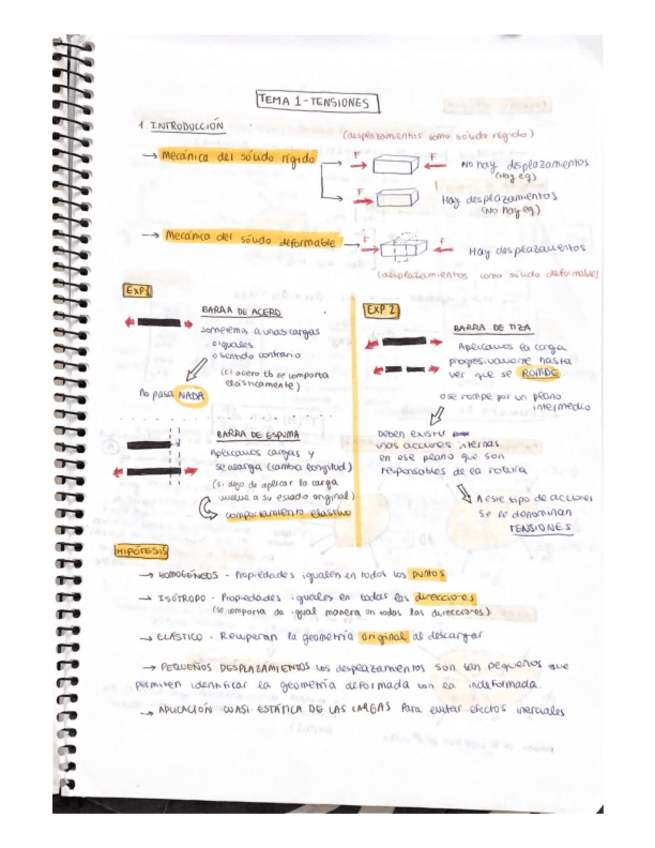 TEMA 1-TENSIONES
1 INTRODUCCIÓN
(desplazamientos como sólido rígido)
→ Mecánica del sólido rígido
F F No hay desplazamientos
(Hay eq)
F Hay desplazamientos
(No hay eq)
→ Mecánica del sólido deformable
F F Hay desplazamientos
(desplazamientos como sólido deformable)
EXP 1
BARRA DE ACERO
Sometemos a unas cargas
o iguales
o sentido contrario
(el acero tb se comporta
elásticamente)
No pasa NADA
BARRA DE ESPUMA
Aplicamos cargas y
se alarga (cambia longitud)
(si dejo de aplicar la carga
vuelve a su estado original)
comportamiento elástico
EXP 2
BARRA DE TIZA
Aplicamos la carga
progresivamente hasta
ver que se ROMPE
o se rompe por un plano
intermedio
Deben existir
unas acciones internas
en ese plano que son
responsables de la rotura
A este tipo de acciones
se le denominan
TENSIONES
HIPÓTESIS
→ HOMOGÉNEOS - Propiedades iguales en todos los puntos
→ ISÓTROPO - Propiedades iguales en todas las direcciones
(se comporta de igual manera en todas las direcciones)
→ ELÁSTICO - Recuperan la geometría original al descargar
→ PEQUEÑOS DESPLAZAMIENTOS los desplazamientos son tan pequeños que
permiten identificar la geometría deformada con la indeformada.
→ APLICACIÓN CUASI-ESTÁTICA DE LAS CARGAS Para evitar efectos inerciales